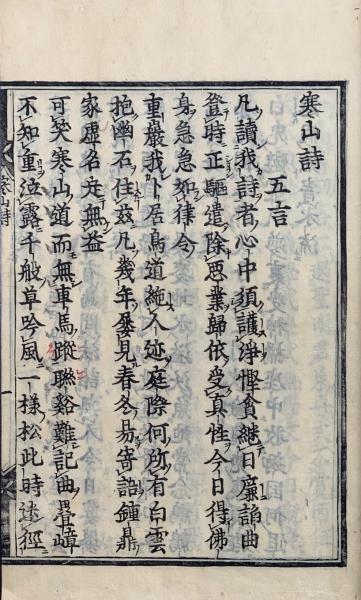 寒山詩
五言
凡讀我詩者心中須護淨慳貪繼日廉諂曲
登時正驅遣除惡業歸依受真性今日得佛
身急急如律令
重巖我卜居鳥道絶人迹庭際何所有白雲
抱幽石住茲凡幾年屢見春冬易寄語鍾鼎
家虛名定無益
可笑寒山道而無車馬蹤聯谿難記曲疊嶂
不知重泣露千般草吟風一樣松此時迷徑
寒山詩